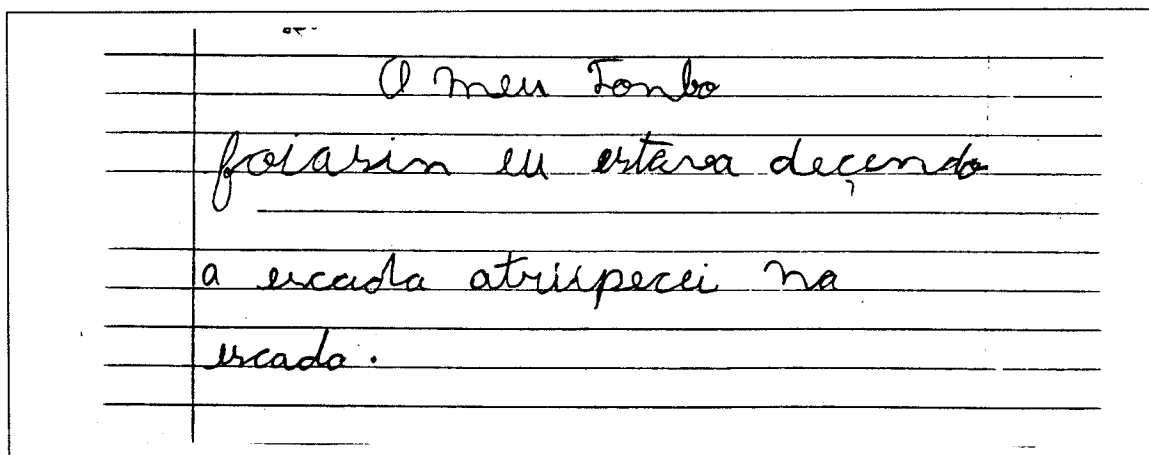 O meu Tonbo
foiasin eu estava deçendo
a escada atrispecei na
escada.